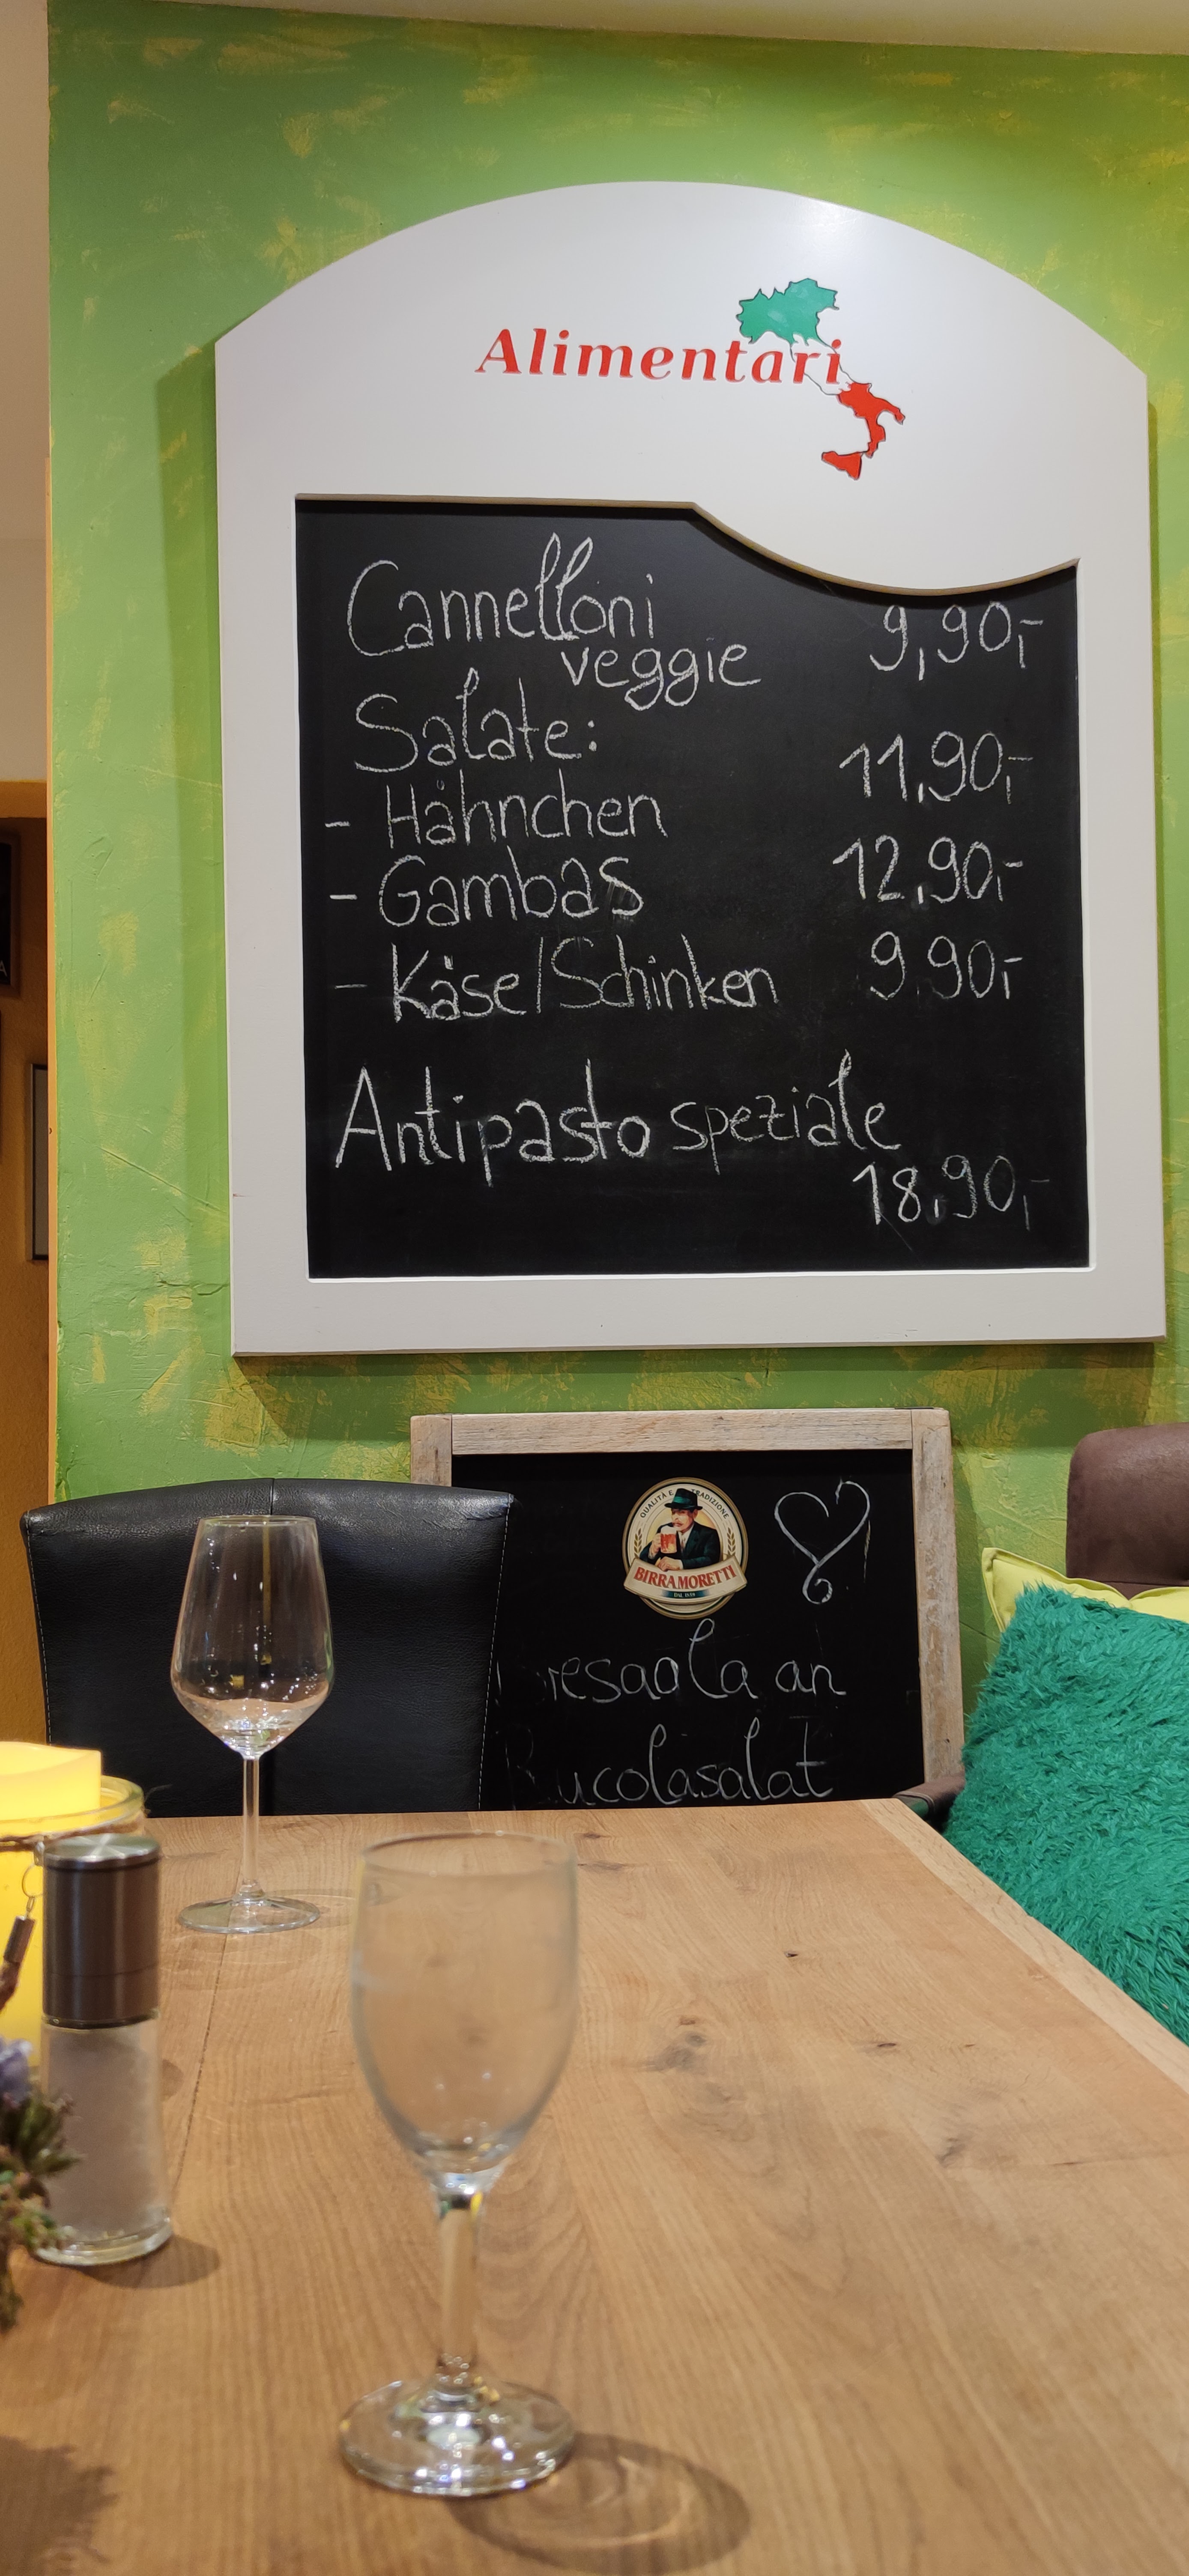 Alimentari
Cannelloni 9,90,-
veggie
Salate:
- Hähnchen 11,90,-
- Gambas 12,90,-
- Käse/Schinken 9.90,-
Antipasto speziale
18,90,-
QUALITÀ E TRADIZIONE
BIRRA MORETTI
an
Rucolasalat